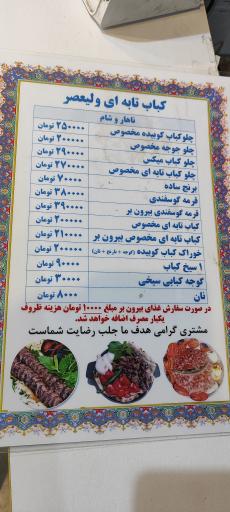 کباب تابه ای ولیعصر
ناهار و شام
چلوکباب کوبیده مخصوص ۲۵۰۰۰۰ تومان
چلو جوجه مخصوص ۲۰۰۰۰۰ تومان
چلو کباب میکس ۲۹۰۰۰۰ تومان
چلو کباب تابه ای مخصوص ۲۷۰۰۰۰ تومان
برنج ساده ۷۰۰۰۰ تومان
قرمه گوسفندی ۳۸۰۰۰۰ تومان
قرمه گوسفندی بیرون بر ۳۹۰۰۰۰ تومان
کباب تابه ای مخصوص ۲۰۰۰۰۰ تومان
کباب تابه ای مخصوص بیرون بر ۲۱۰۰۰۰ تومان
خوراک کباب کوبیده (گوجه + نارنج + نان) ۲۰۰۰۰۰ تومان
۱ سیخ کباب ۹۰۰۰۰ تومان
گوجه کبابی سیخی ۳۰۰۰۰ تومان
نان ۸۰۰۰ تومان
در صورت سفارش غذای بیرون بر مبلغ ۱۰۰۰۰ تومان هزینه ظروف
یکبار مصرف اضافه خواهد شد.
مشتری گرامی هدف ما جلب رضایت شماست